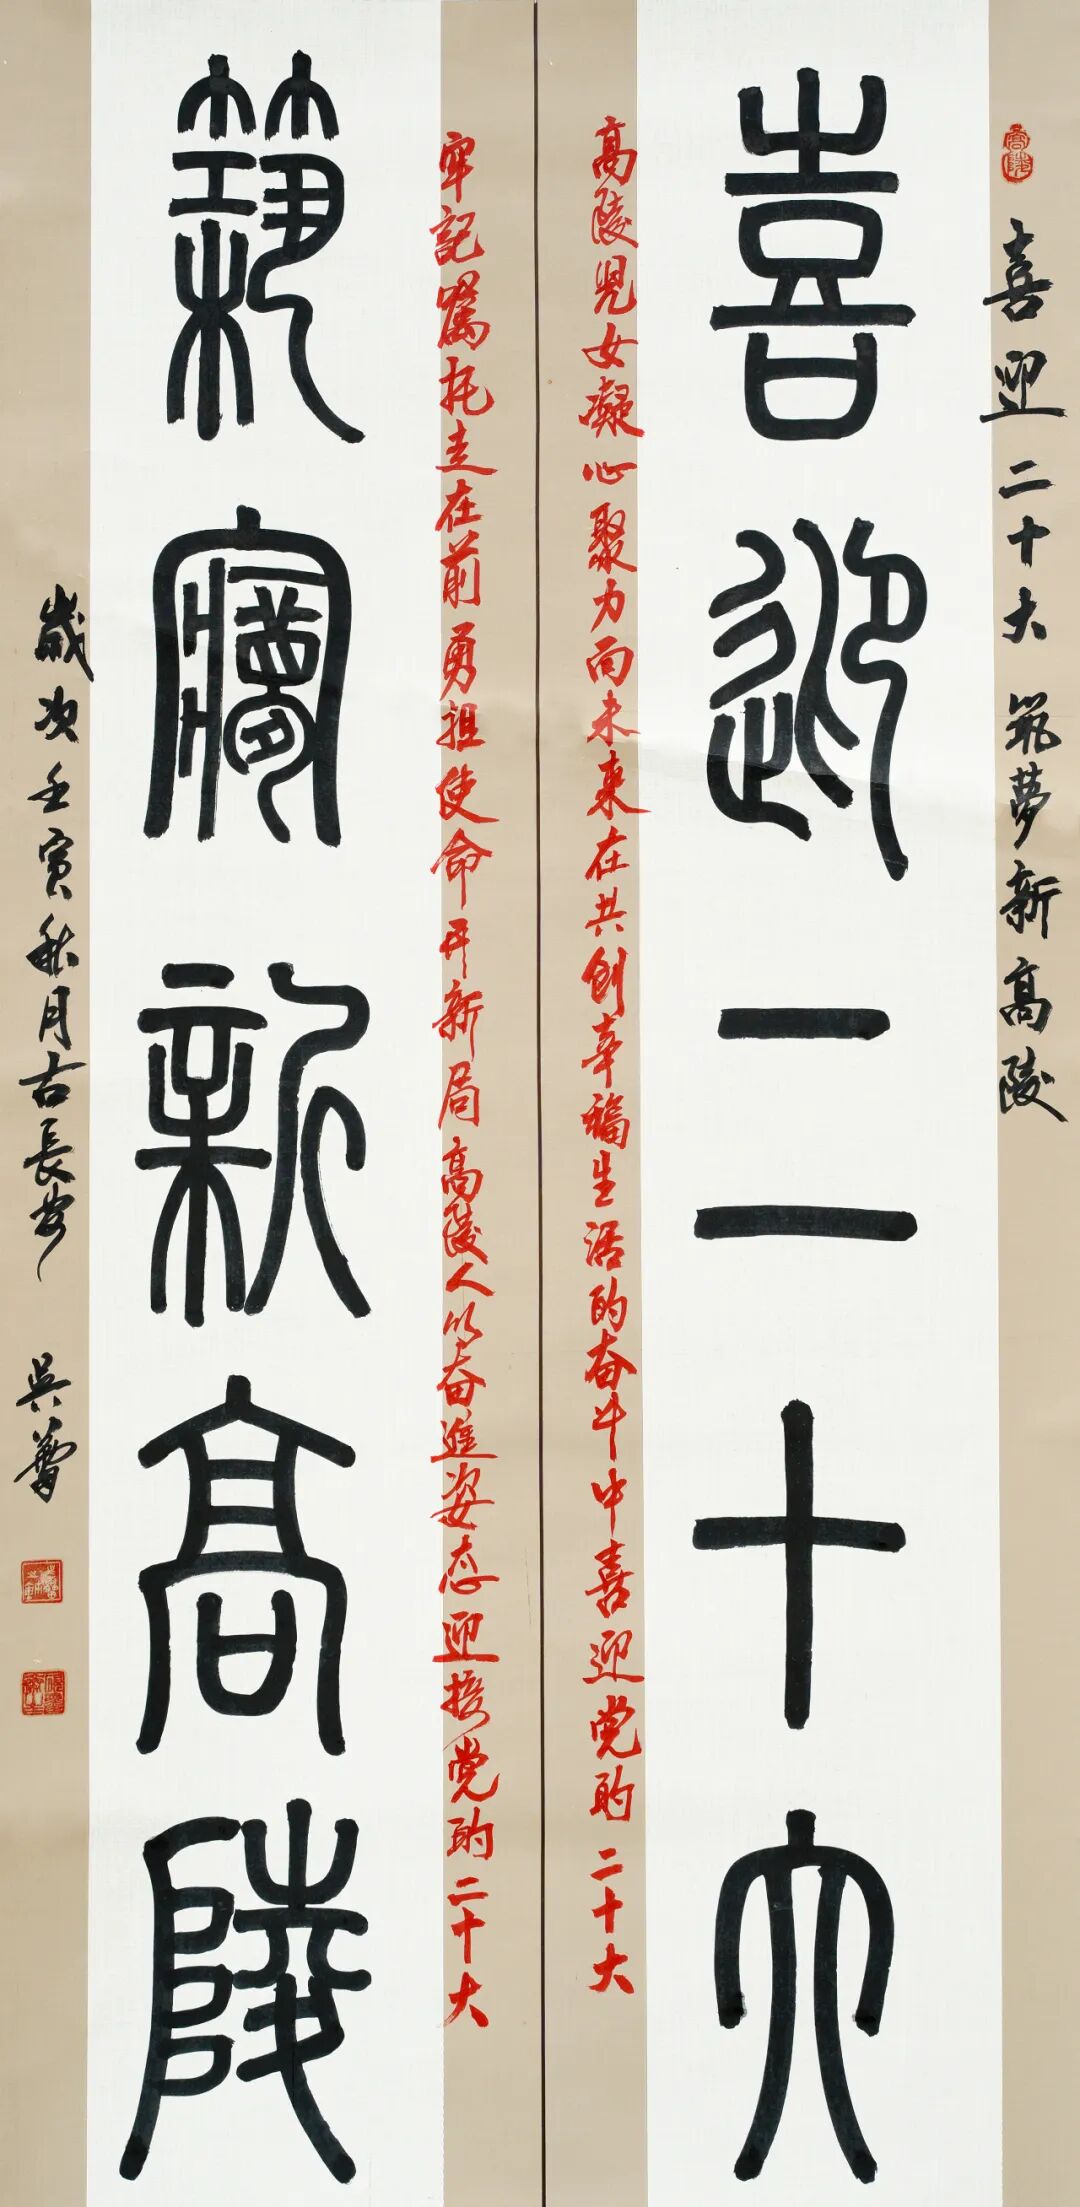 高陵
喜迎二十大 筑夢新高陵
喜迎二十大
高陵兒女凝心聚力向未来在共創幸福生活的奋斗中喜迎党的二十大
牢記嘱托走在前勇担使命开新局高陵人以奋進姿态迎接党的二十大
築夢新高陵
歲次壬寅秋月古長安 吳